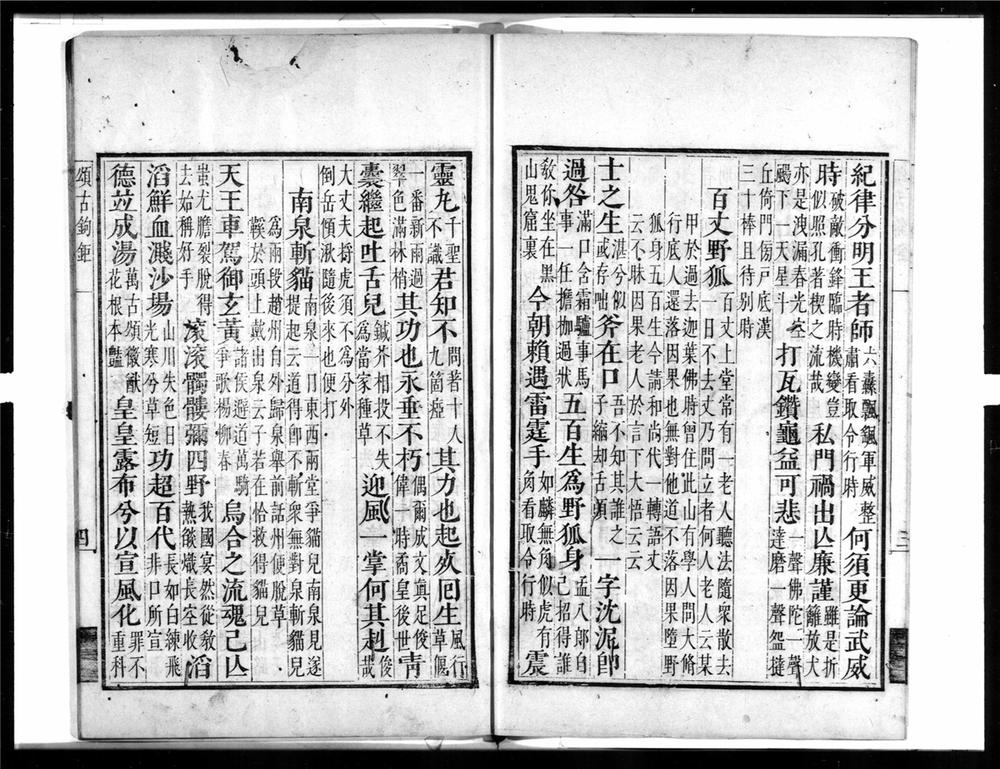 紀律分明王者師
六纛飄颻軍威整
肅看取令行時
何須更論武威
時
破敵衝鋒臨時機變豈
似照孔者楔之流哉
私門禍出亾廉謹
雖是折
籬放犬
亦是洩漏春光
颺下一天星斗
打瓦鑽龜益可悲
一聲佛陀一聲
達磨一聲撻
丘倚門傍戶底漢
三十棒且待別時
百丈野狐
百丈上堂常有一老人聽法隨衆散去
一日不去丈乃問立者何人老人云某
甲於過去迦葉佛時曾住此山有學人問大脩
行底人還落因果也無對他道不落因果墮野
狐身五百生今請和尚代一轉語丈
云不昧因果老人於言下大悟云云
士之生
湛兮似
或存咄
斧在口
吾不知其誰之
子縮却舌頭
一字沈泥郎
過咎
滿口含霜驢事馬
事一任擔枷過狀
五百生爲野狐身
孟八郎自
己招得誰
敎你坐在黑
山鬼窟裏
今朝賴遇雷霆手
如麟無角似虎有
角看取令行時
震
三
靈九
千聖
不識
君知不
問著十人
九箇瘂
其力也起死囘生
風行
草偃
一番新雨過
翠色滿林梢
其功也永垂不朽
偶爾成文真足俊
偉一時喬皇後世
靑
囊繼起吐舌兒
鍼芥相投不失
爲當家種草
迎風一掌何其剋
俊
哉
大丈夫捋虎須不爲分外
倒岳傾湫隨後來也便打
南泉斬貓
南泉一日東西兩堂爭貓兒南泉見遂
提起云道得卽不斬衆無對泉斬貓兒
爲兩段趙州自外歸泉舉前話州便脫草
鞵於頭上戴出泉云子若在恰救得貓兒
天王車駕御玄黃
諸侯避道萬騎
爭歌楊柳春
烏合之流魂已亾
蚩尤膽裂脫得
去始稱好手
滾滾髑髏彌四野
我國宴然從敎
爇燄熾長空收
滔
滔鮮血濺沙場
山川失色日月
光寒兮草短
功超百代
長如白練飛
非口所宣
德竝成湯
萬古頌徽猷
花根本豔
皇皇露布兮以宣風化
罪不
重科
頌古鉤鉅
四